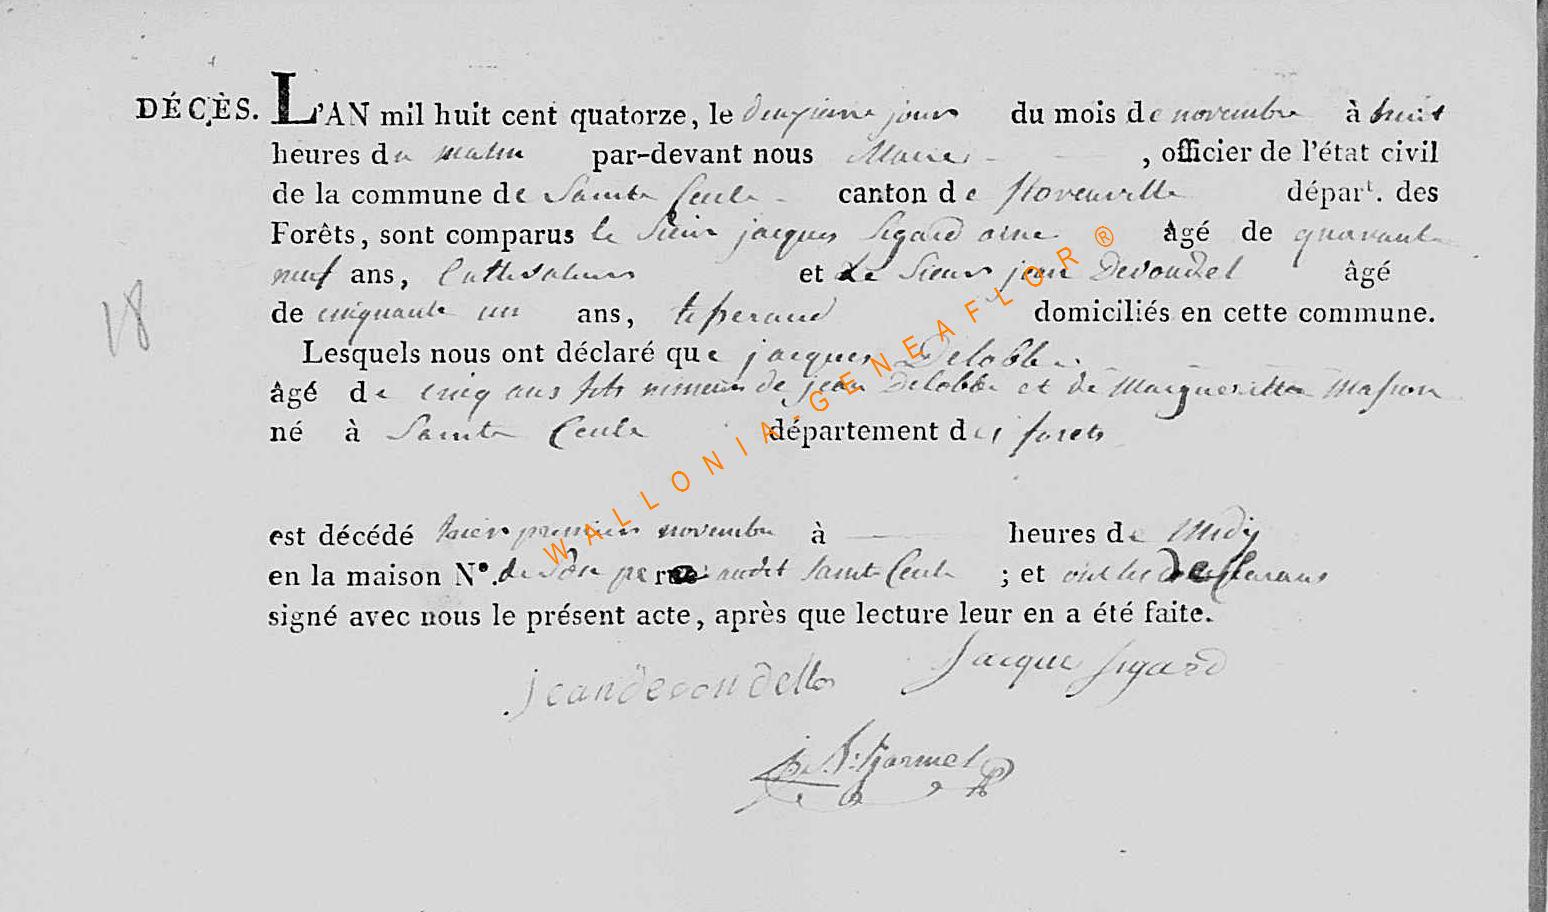 DÉCÈS. L'AN mil huit cent quatorze, le deuxieme jour du mois de novembre à huit
heures du matin par-devant nous Maire , officier de l'état civil
de la commune de Sainte Cecile canton de florenville départ. des
Forêts, sont comparus le Sieur jacques Sigard âgé de quarante
neuf ans, Cultivateur et Le Sieur jean Devoudel âgé
de cinquante un ans, tisserand domiciliés en cette commune.
Lesquels nous ont déclaré que jacques Delobbe
âgé de cinq ans fils mineur de jean Delobbe et de Margueritte Masson
né à Sainte Cecile département des forets
est décédé hier premier novembre à heures de Midy
en la maison N°. de son pere audit Sainte Cecile ; et ont les Declarans
signé avec nous le présent acte, après que lecture leur en a été faite.
jean Jacque Sigard
18
WALLONIA-GENEAFLOR ®